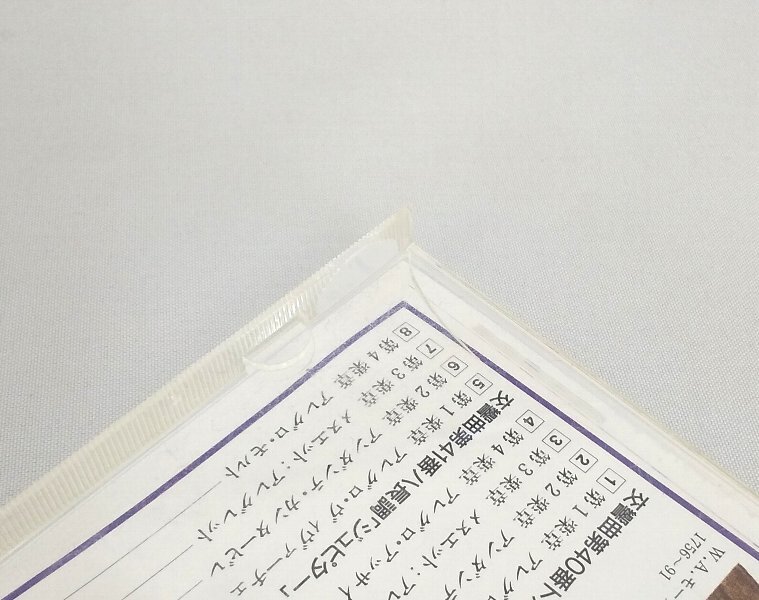 W.A.モー
1756~91
交響曲第40番ト
1 第1楽章 アレグ
2 第2楽章 アンダンテ
3 第3楽章 メヌエット:アレ
4 第4楽章 アレグロ・アッサイ
交響曲第41番ハ長調「ジュピター」
5 第1楽章 アレグロ・ヴィヴァーチェ
6 第2楽章 アンダンテ・カンタービレ
7 第3楽章 メヌエット:アレグレット
8 第4楽章 アレグロ・モルト